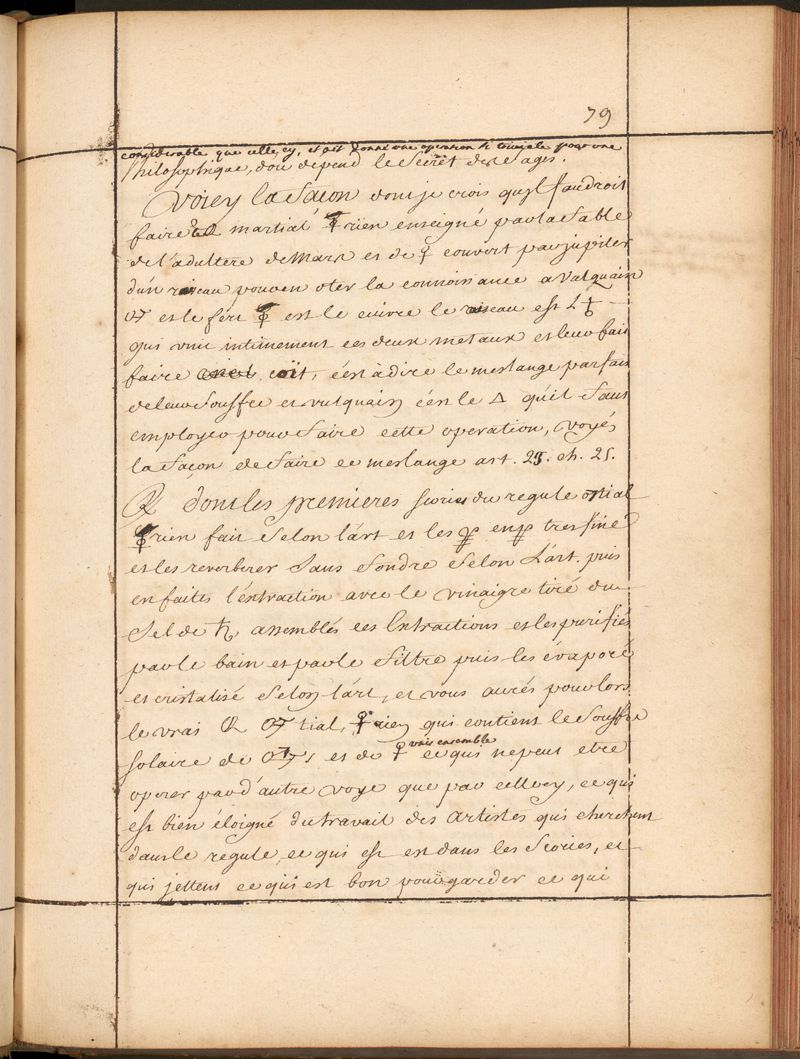 79
considerable que celle cy, et est donné une operation
Philosophique, dou depend le Secret des Sages.
Voicy la Façon dont je crois quil faudroit
faire martial ♀rien enseigné par la Fable
de l'adultere de Mars et de ♀ couvert par jupiter
d'un reseau pouven oter la connoissance a Vulquain
♂ est le fer ♀ est le cuivre le reseau est
qui unit intimement ces deux metaux et leur fait
faire coït, c'est à dire le meslange parfait
de leur Souffre et vulquain c'est le △ qu'il faut
employer pour Faire cette operation, voyés
la Façon de Faire ce meslange art. 25. ch. 25.
℞ dont les premieres scories du regule ♂tial
♀rien fait Selon l'art et les tres finé
et les reverberer Sans Fondre Selon L'art. puis
en faites l'extraction avec le vinaigre tiré du
Sel de ♄, assemblés ces Extractions et les purifiés
par le bain et par le Filtre puis les évaporé
et cristalisé Selon l'art, et vous aurés pour lors
le vrai ♂tial, ♀rien qui contient le Souffre
solaire de ♂ et de ♀ unis ensemble ce qui ne peut etre
operer par d'autre voye que par celle cy, ce qui
est bien éloigné du travail des Artistes qui cherchent
dans le regule, ce qui est en dans les Scories, et
qui jettent ce qui est bon pour garder ce qui